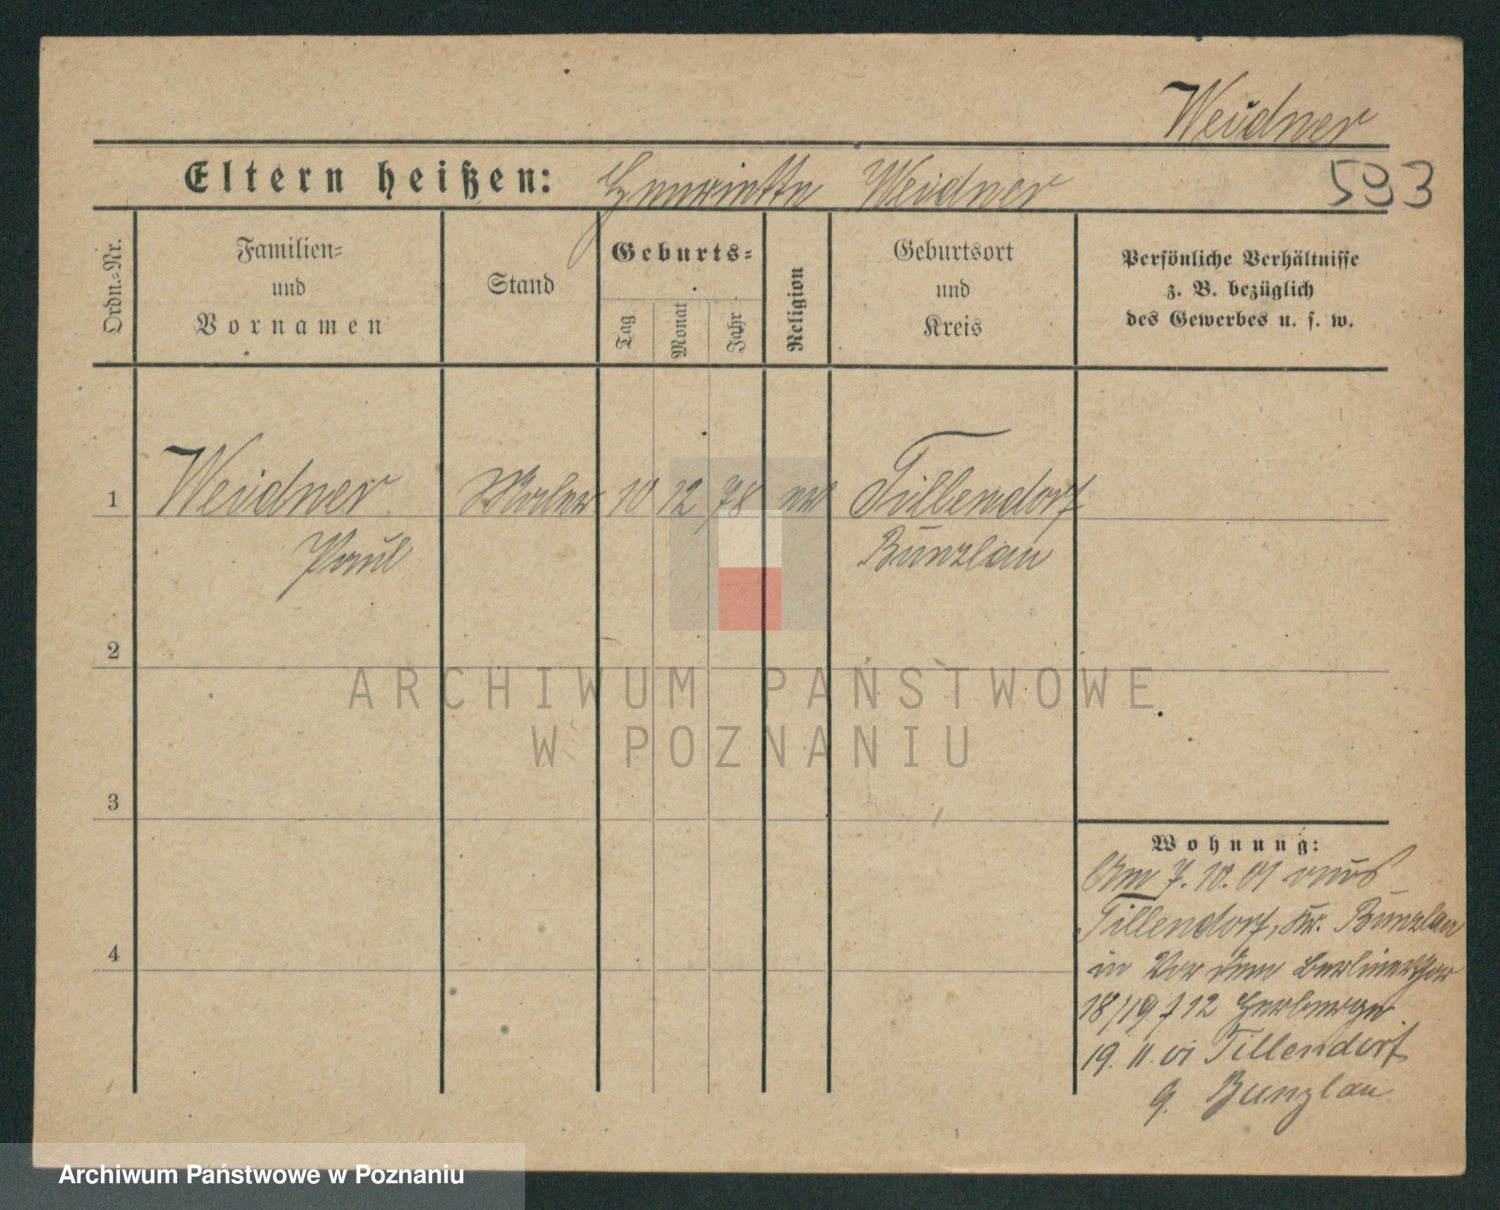 Weidner
Eltern heißen: Henriette Weidner 593
Ordn.=Nr.
Familien=
und
Vornamen
Stand
Geburts=
Tag
Monat
Jahr
Religion
Geburtsort
und
Kreis
Persönliche Verhältnisse
z. B. bezüglich
des Gewerbes u. s. w.
1 Weidner Maler 10 12 78 ev Tillendorf
Paul Bunzlau
2
3
4
ARCHIWUM PAŃSTWOWE
W POZNANIU
Wohnung:
Am 7. 10. 01 aus
Tillendorf, Kr. Bunzlau
in Vor dem Berlinerthor
18/19 f 12 Herberge
19. 11. 01 Tillendorf
Bunzlau
Archiwum Państwowe w Poznaniu